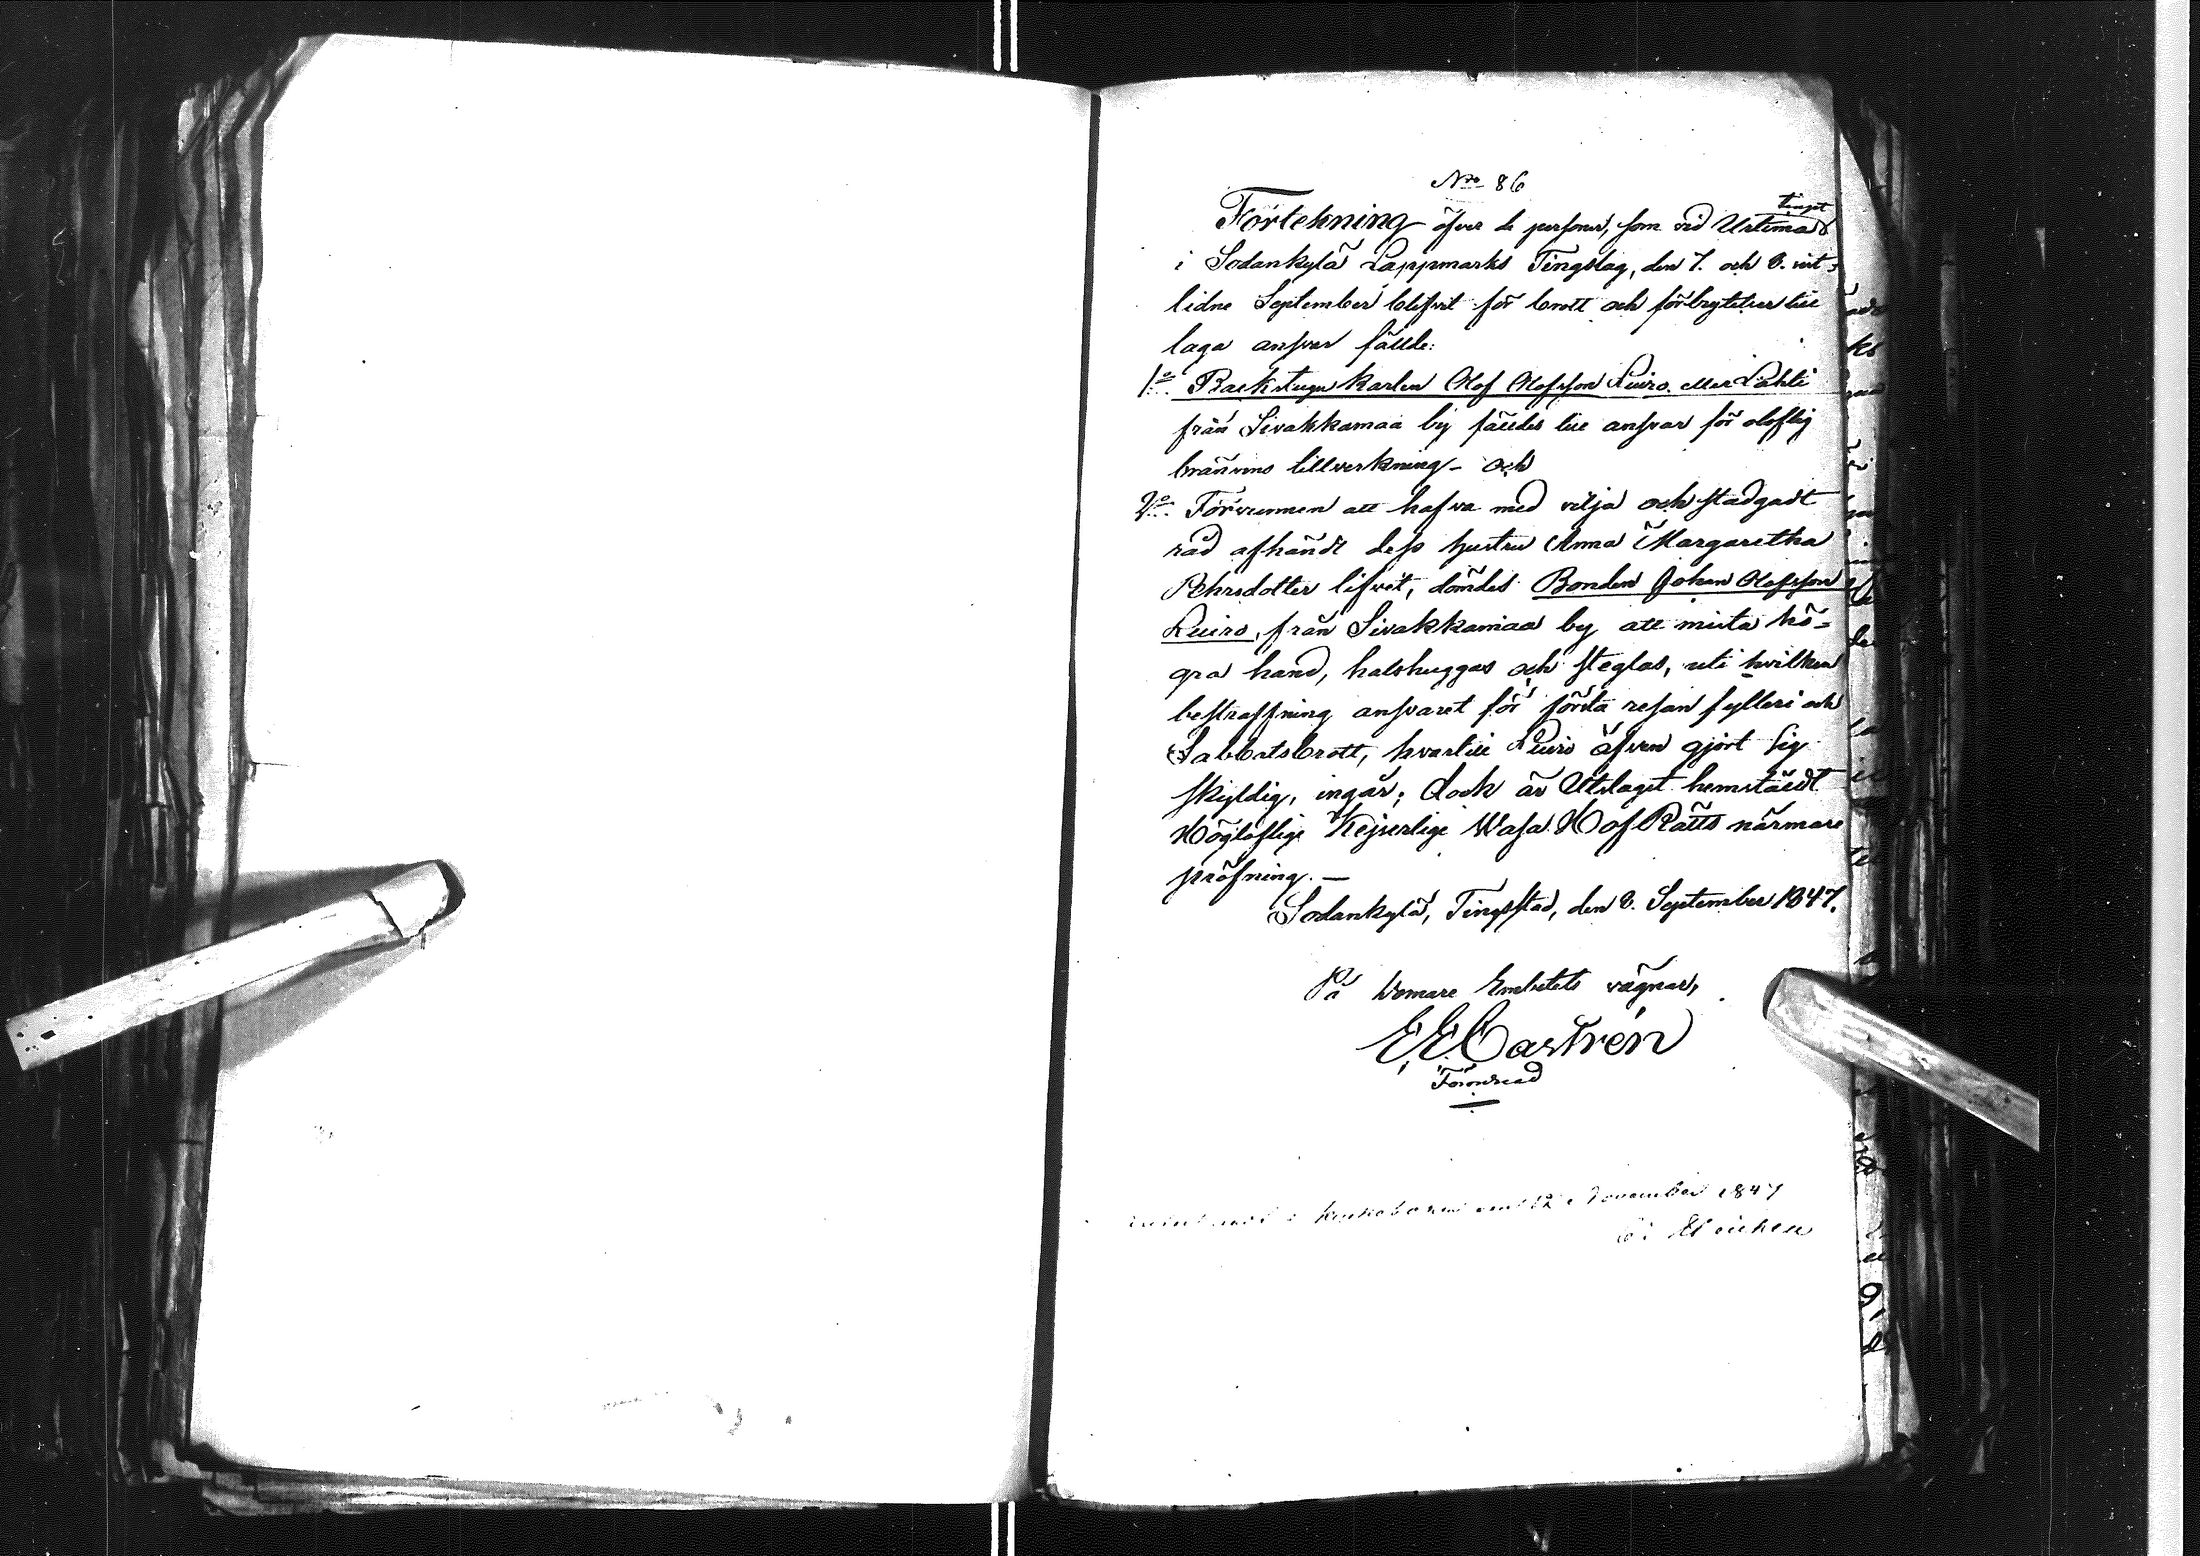 No 86
Förtekning öfver de personer, som vid Urtima tinget
i Sodankylä Lappmarks Tingslag, den 7. och 8. uti-
lidne September blifvit för brott och förbrytelser till
laga ansvar fällde:
1o. Backstugu karlen Olof Olofsson Kuiro eller Lahti
från Sivakkamaa by fälldes till ansvar för oloflig
bränvins tillverkning - och
2o. Förvunnen att hafva med vilja och stadgadt
råd afhändt dess hustru Anna Margaretha
Pehrsdotter lifvet, dömdes Bonden Johan Olofsson
Kuiro, från Sivakkamaa by att mista hö-
gra hand, halshuggas och steglas, uti hvilken
bestraffning ansvaret för första resan fylleri och
Sabbatsbrott, hvartill Kuiro äfven gjort sig
skyldig, ingår; dock är Utslaget hemstäldt
Högloflige Kejserlige Wasa HofRätts närmare
pröfning. —
Sodankylä, Tingsstad, den 8. September 1847.
På Domare Embetets vägnar,
E. E. Castrén
Förordnad
November 1847